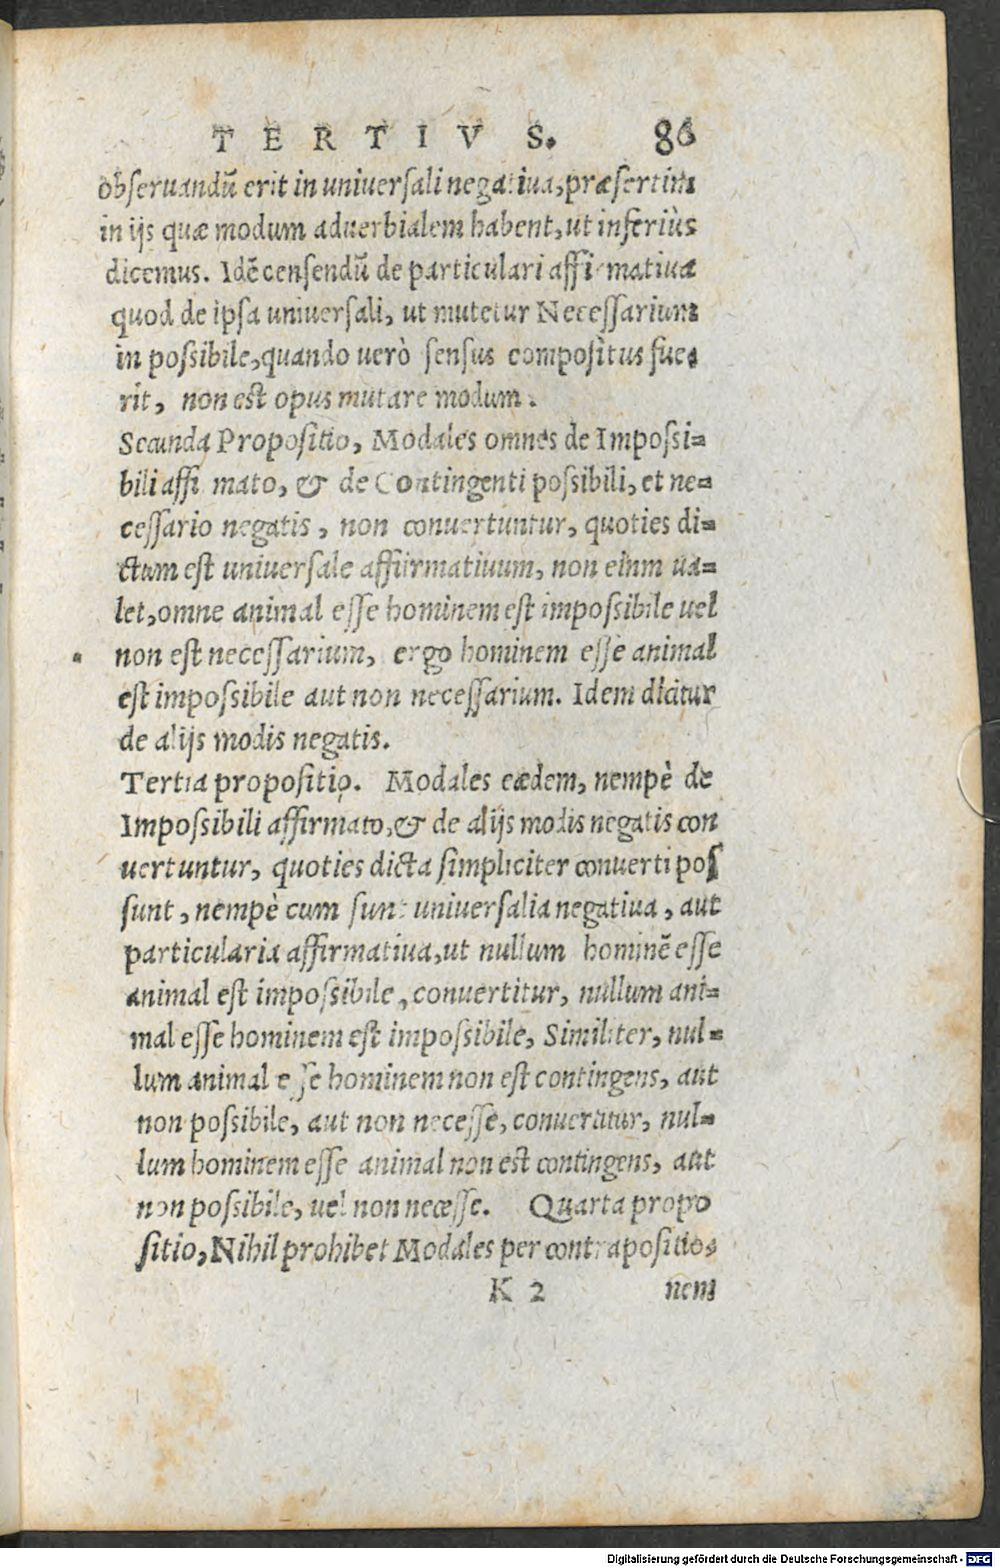 TERTIVS. 86
obseruandū erit in uniuersali negatiua, præsertim
in ijs quæ modum aduerbialem habent, ut inferiùs
dicemus. Idē censendū de particulari affirmatiua
quod de ipsa uniuersali, ut mutetur Necessarium
in possibile, quando uerò sensus compositus fue-
rit, non est opus mutare modum.
Secunda Propositio, Modales omnes de Impossi-
bili affi mato, & de Contingenti possibili, et ne-
cessario negatis, non conuertuntur, quoties di-
ctum est uniuersale affirmatiuum, non einm ua-
let, omne animal esse hominem est impossibile uel
non est necessarium, ergo hominem esse animal
est impossibile aut non necessarium. Idem dicitur
de alijs modis negatis.
Tertia propositio. Modales eædem, nempè de
Impossibili affirmato, & de alijs modis negatis con
uertuntur, quoties dicta simpliciter conuerti pos
sunt, nempè cum sunt uniuersalia negatiua, aut
particularia affirmatiua, ut nullum hominē esse
animal est impossibile, conuertitur, nullum ani-
mal esse hominem est impossibile, Similiter, nul-
lum animal esse hominem non est contingens, aut
non possibile, aut non necesse, conuertitur, nul-
lum hominem esse animal non est contingens, aut
non possibile, uel non necesse. Quarta propo
sitio, Nihil prohibet Modales per contrapositio-
K 2 nem
Digitalisierung gefördert durch die Deutsche Forschungsgemeinschaft - DFG